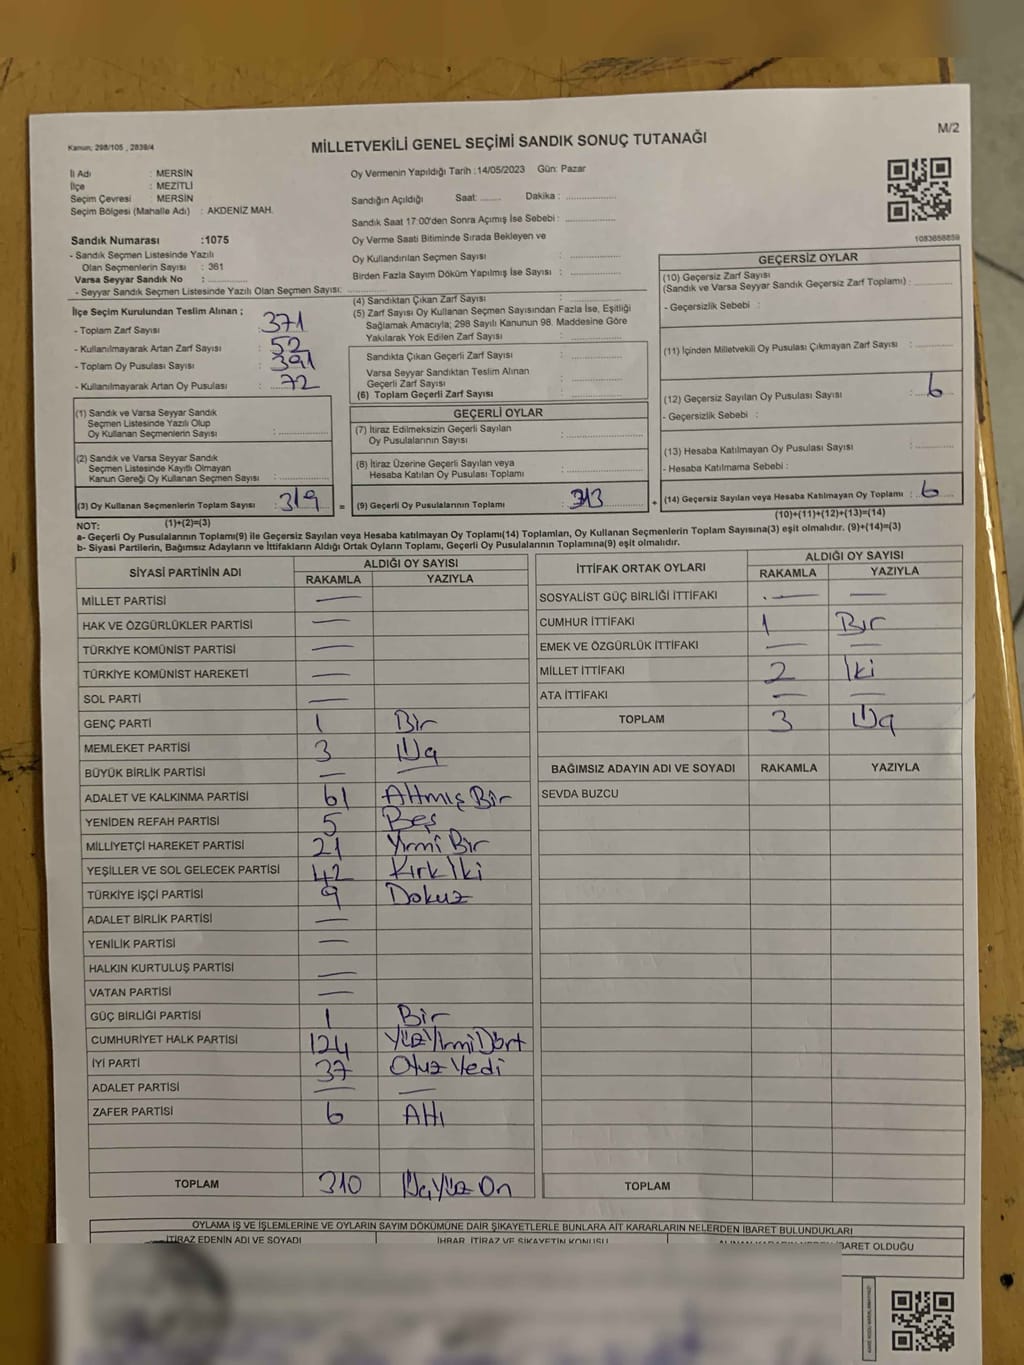 M/2
Kanun; 298/105 , 2839/4
MİLLETVEKİLİ GENEL SEÇİMİ SANDIK SONUÇ TUTANAĞI
İl Adı : MERSİN
İlçe : MEZİTLİ
Seçim Çevresi : MERSİN
Seçim Bölgesi (Mahalle Adı) : AKDENİZ MAH.
Sandık Numarası :1075
- Sandık Seçmen Listesinde Yazılı
Olan Seçmenlerin Sayısı : 361
Varsa Seyyar Sandık No :
- Seyyar Sandık Seçmen Listesinde Yazılı Olan Seçmen Sayısı:
Oy Vermenin Yapıldığı Tarih :14/05/2023 Gün: Pazar
Sandığın Açıldığı Saat: Dakika :
Sandık Saat 17:00'den Sonra Açımış İse Sebebi :
Oy Verme Saati Bitiminde Sırada Bekleyen ve
Oy Kullandırılan Seçmen Sayısı :
Birden Fazla Sayım Döküm Yapılmış İse Sayısı :
1083658859
İlçe Seçim Kurulundan Teslim Alınan ;
- Toplam Zarf Sayısı : 371
- Kullanılmayarak Artan Zarf Sayısı : 52
- Toplam Oy Pusulası Sayısı : 391
- Kullanılmayarak Artan Oy Pusulası : 72
(1) Sandık ve Varsa Seyyar Sandık
Seçmen Listesinde Yazılı Olup
Oy Kullanan Seçmenlerin Sayısı :
(2) Sandık ve Varsa Seyyar Sandık
Seçmen Listesinde Kayıtlı Olmayan
Kanun Gereği Oy Kullanan Seçmen Sayısı :
(3) Oy Kullanan Seçmenlerin Toplam Sayısı : 319 =
(1)+(2)=(3)
(4) Sandıktan Çıkan Zarf Sayısı :
(5) Zarf Sayısı Oy Kullanan Seçmen Sayısından Fazla İse, Eşitliği
Sağlamak Amacıyla; 298 Sayılı Kanunun 98. Maddesine Göre
Yakılarak Yok Edilen Zarf Sayısı :
Sandıkta Çıkan Geçerli Zarf Sayısı :
Varsa Seyyar Sandıktan Teslim Alınan
Geçerli Zarf Sayısı :
(6) Toplam Geçerli Zarf Sayısı :
GEÇERLİ OYLAR
(7) İtiraz Edilmeksizin Geçerli Sayılan
Oy Pusulalarının Sayısı :
(8) İtiraz Üzerine Geçerli Sayılan veya
Hesaba Katılan Oy Pusulası Toplamı :
(9) Geçerli Oy Pusulalarının Toplamı : 313 +
GEÇERSİZ OYLAR
(10) Geçersiz Zarf Sayısı
(Sandık ve Varsa Seyyar Sandık Geçersiz Zarf Toplamı) :
- Geçersizlik Sebebi :
(11) İçinden Milletvekili Oy Pusulası Çıkmayan Zarf Sayısı :
(12) Geçersiz Sayılan Oy Pusulası Sayısı : 6
- Geçersizlik Sebebi :
(13) Hesaba Katılmayan Oy Pusulası Sayısı :
- Hesaba Katılmama Sebebi :
(14) Geçersiz Sayılan veya Hesaba Katılmayan Oy Toplamı : 6
(10)+(11)+(12)+(13)=(14)
NOT:
a- Geçerli Oy Pusulalarının Toplamı(9) ile Geçersiz Sayılan veya Hesaba katılmayan Oy Toplamı(14) Toplamları, Oy Kullanan Seçmenlerin Toplam Sayısına(3) eşit olmalıdır. (9)+(14)=(3)
b- Siyasi Partilerin, Bağımsız Adayların ve İttifakların Aldığı Ortak Oyların Toplamı, Geçerli Oy Pusulalarının Toplamına(9) eşit olmalıdır.
SİYASİ PARTİNİN ADI ALDIĞI OY SAYISI
RAKAMLA YAZIYLA
MİLLET PARTİSİ —
HAK VE ÖZGÜRLÜKLER PARTİSİ —
TÜRKİYE KOMÜNİST PARTİSİ —
TÜRKİYE KOMÜNİST HAREKETİ —
SOL PARTİ —
GENÇ PARTİ 1 Bir
MEMLEKET PARTİSİ 3 Üç
BÜYÜK BİRLİK PARTİSİ — —
ADALET VE KALKINMA PARTİSİ 61 Altmış Bir
YENİDEN REFAH PARTİSİ 5 Beş
MİLLİYETÇİ HAREKET PARTİSİ 21 Yirmi Bir
YEŞİLLER VE SOL GELECEK PARTİSİ 42 Kırk İki
TÜRKİYE İŞÇİ PARTİSİ 9 Dokuz
ADALET BİRLİK PARTİSİ —
YENİLİK PARTİSİ —
HALKIN KURTULUŞ PARTİSİ —
VATAN PARTİSİ —
GÜÇ BİRLİĞİ PARTİSİ 1 Bir
CUMHURİYET HALK PARTİSİ 124 Yüz Yirmi Dört
İYİ PARTİ 37 Otuz Yedi
ADALET PARTİSİ — —
ZAFER PARTİSİ 6 Altı
TOPLAM 310 Üç Yüz On
İTTİFAK ORTAK OYLARI ALDIĞI OY SAYISI
RAKAMLA YAZIYLA
SOSYALİST GÜÇ BİRLİĞİ İTTİFAKI — —
CUMHUR İTTİFAKI 1 Bir
EMEK VE ÖZGÜRLÜK İTTİFAKI — —
MİLLET İTTİFAKI 2 İki
ATA İTTİFAKI — —
TOPLAM 3 Üç
BAĞIMSIZ ADAYIN ADI VE SOYADI RAKAMLA YAZIYLA
SEVDA BUZCU
TOPLAM
OYLAMA İŞ VE İŞLEMLERİNE VE OYLARIN SAYIM DÖKÜMÜNE DAİR ŞİKAYETLERLE BUNLARA AİT KARARLARIN NELERDEN İBARET BULUNDUKLARI
İTİRAZ EDENİN ADI VE SOYADI İHBAR, İTİRAZ VE ŞİKAYETİN KONUSU İBARET OLDUĞU